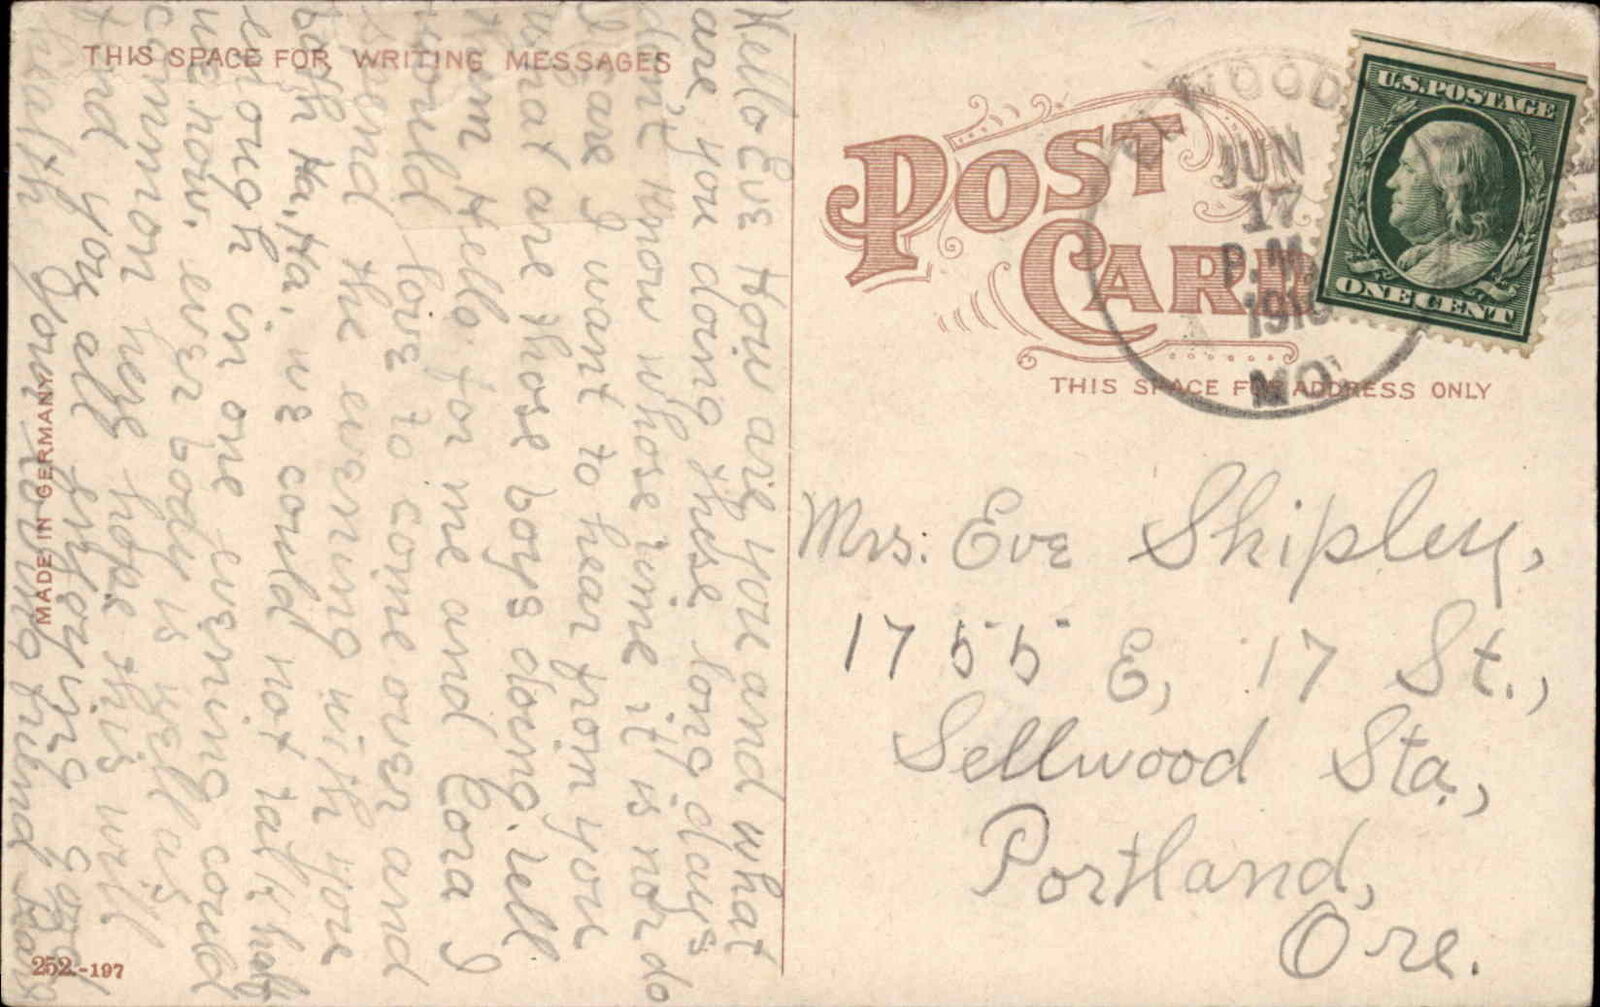 THIS SPACE FOR WRITING MESSAGES
Hello Eve How are you and what
are you doing these long days
don't know whose time it is nor do
I care I want to hear from you
what are those boys doing. tell
them Hello for me and Cora I
would love to come over and
spend the evening with you
both Ha, Ha, we could not talk half
enough in one evening could
we now. ever body is well as
common here hope this will
find you all enjoying good
health your loving friend
MADE IN GERMANY
252.-197
POST CARD
WOOD
JUN
17
P.M.
1910
MO.
U.S. POSTAGE
ONE CENT
THIS SPACE FOR ADDRESS ONLY
Mrs. Eve Shipley,
1755 E, 17 St.,
Sellwood Sta.,
Portland,
Ore.